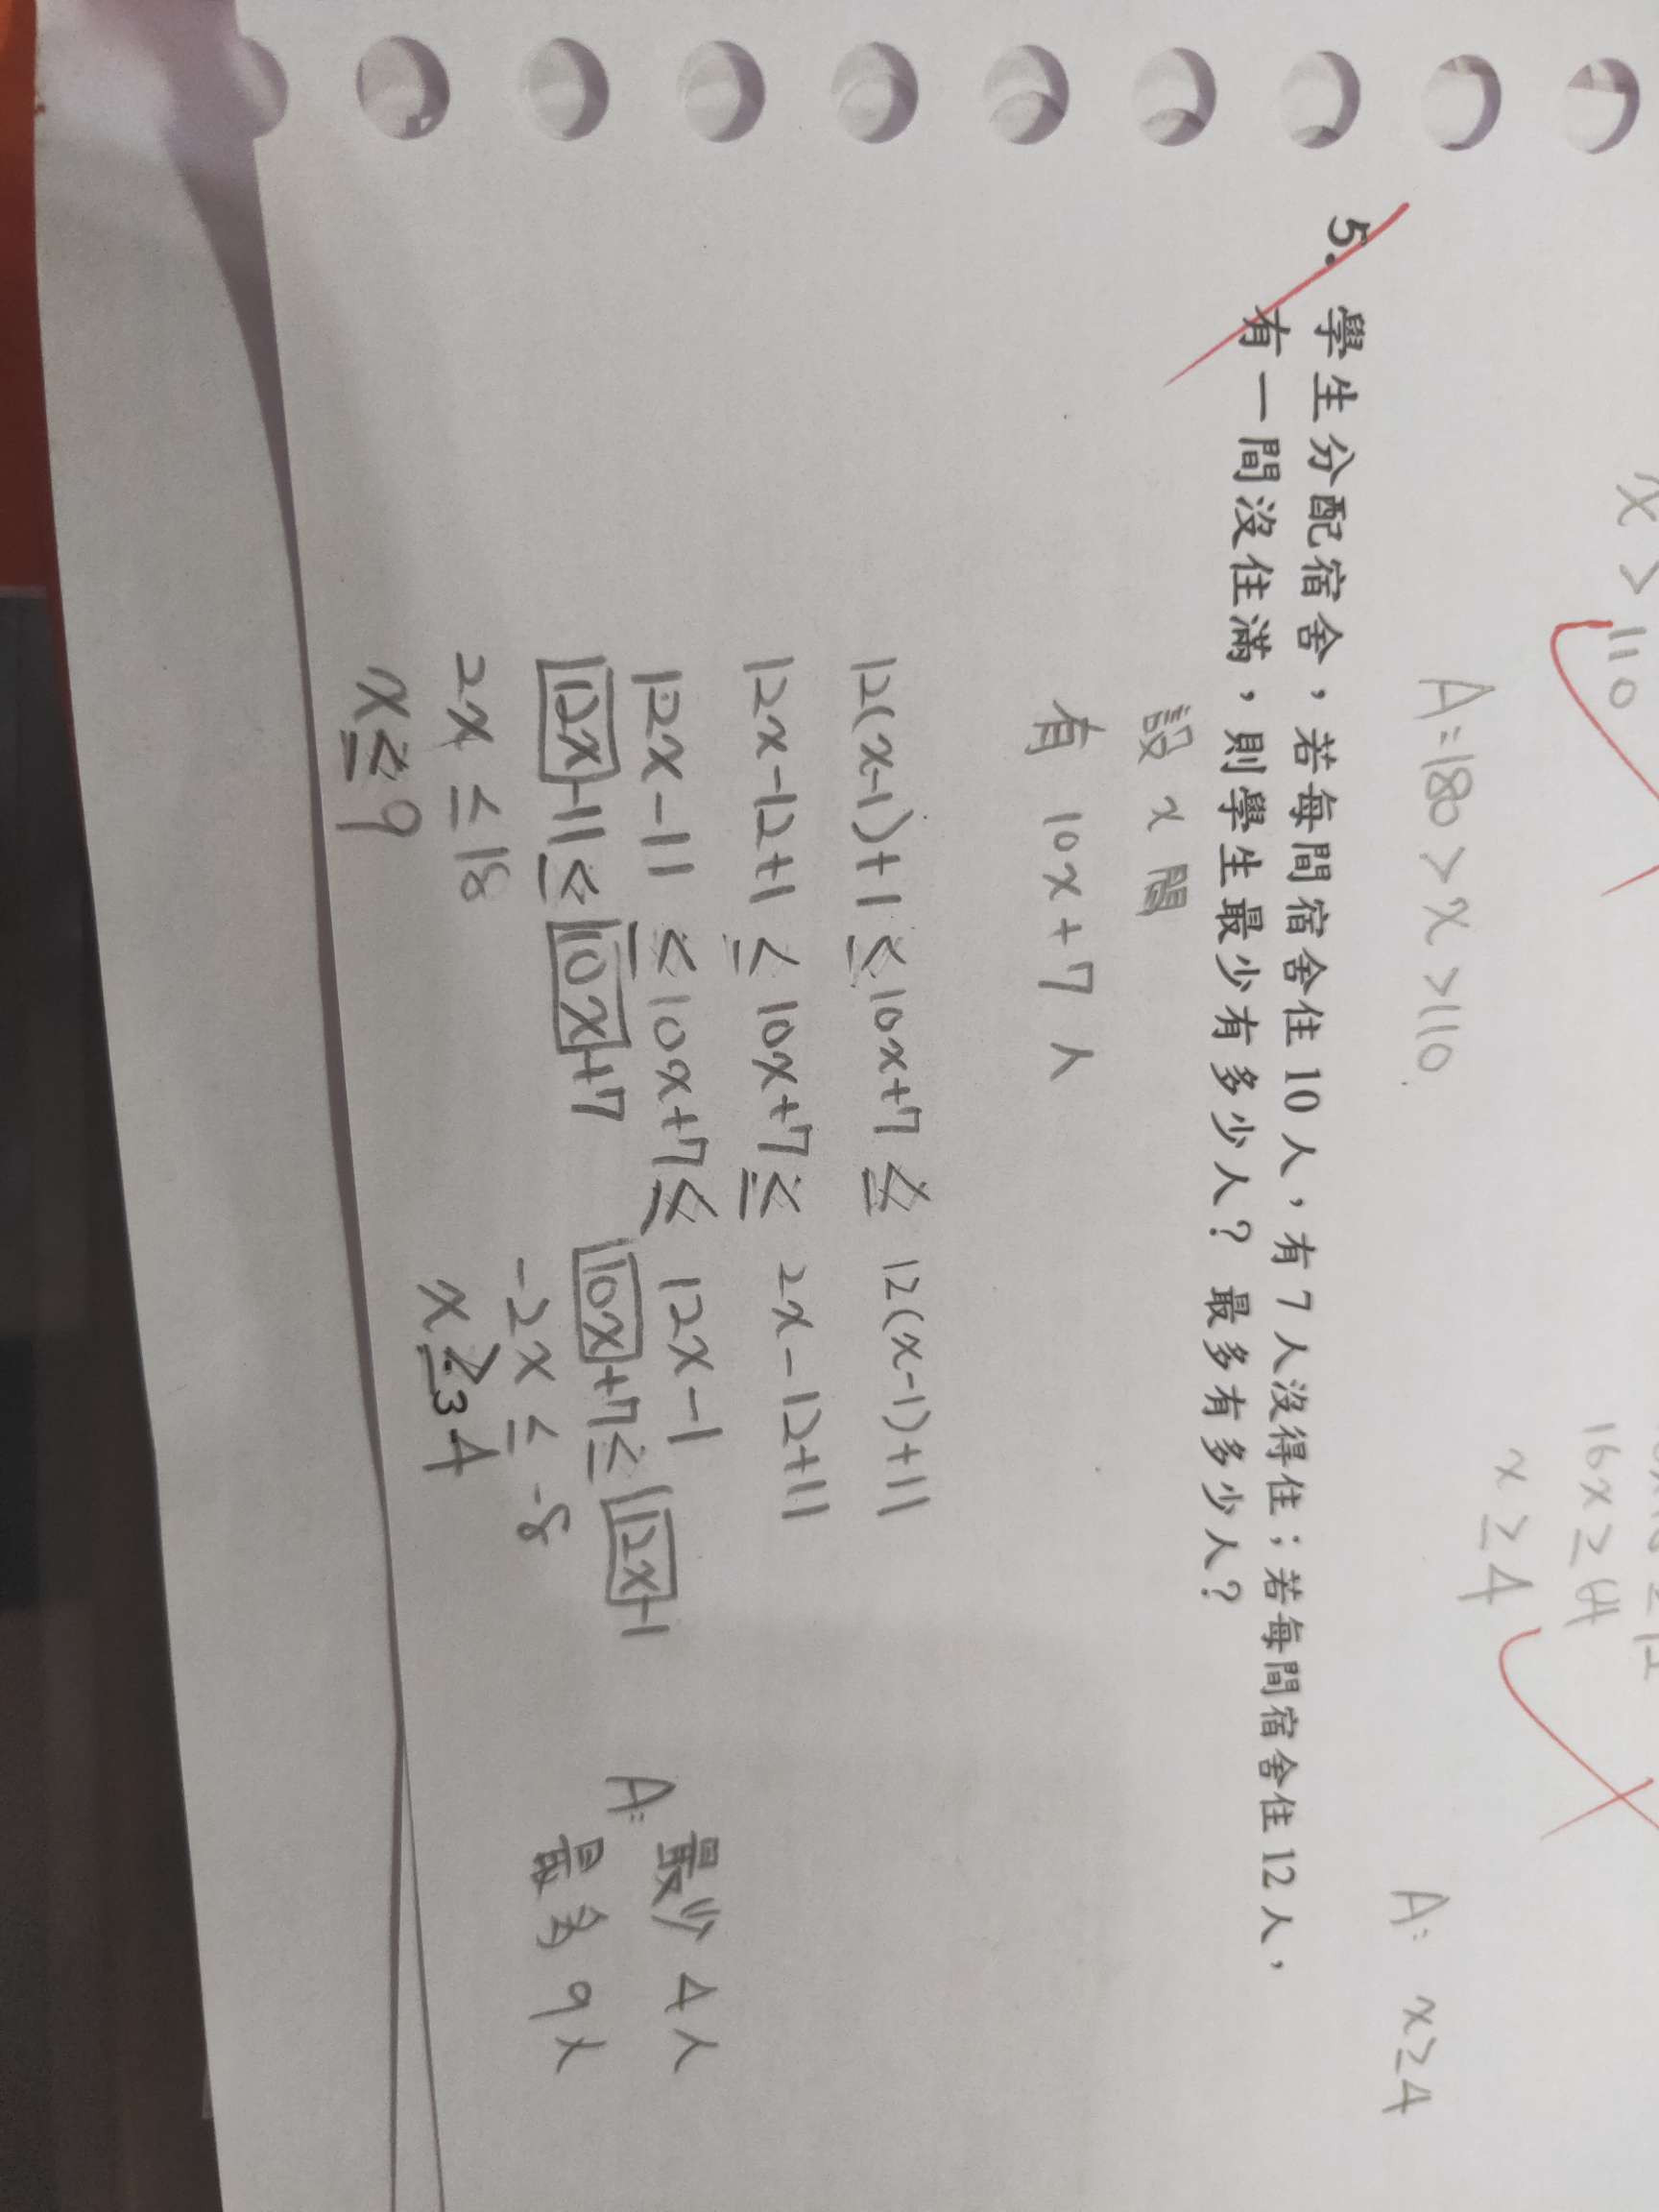 x > 110
16x ≥ 64
x ≥ 4
A: 180 > x > 110
A: x ≥ 4
5. 學生分配宿舍，若每間宿舍住 10 人，有 7 人沒得住；若每間宿舍住 12 人，
有一間沒住滿，則學生最少有多少人？最多有多少人？
設 x 間
有 10x+7 人
12(x-1)+1 ≤ 10x+7 ≤ 12(x-1)+11
12x-12+1 ≤ 10x+7 ≤ 2x-12+11
12x-11 ≤ 10x+7 ≤ 12x-1
12x-11 ≤ 10x+7 10x+7 ≤ 12x-1
2x ≤ 18 -2x ≤ -8
x ≤ 9 x ≥ 4
A: 最少 4人
最多 9人